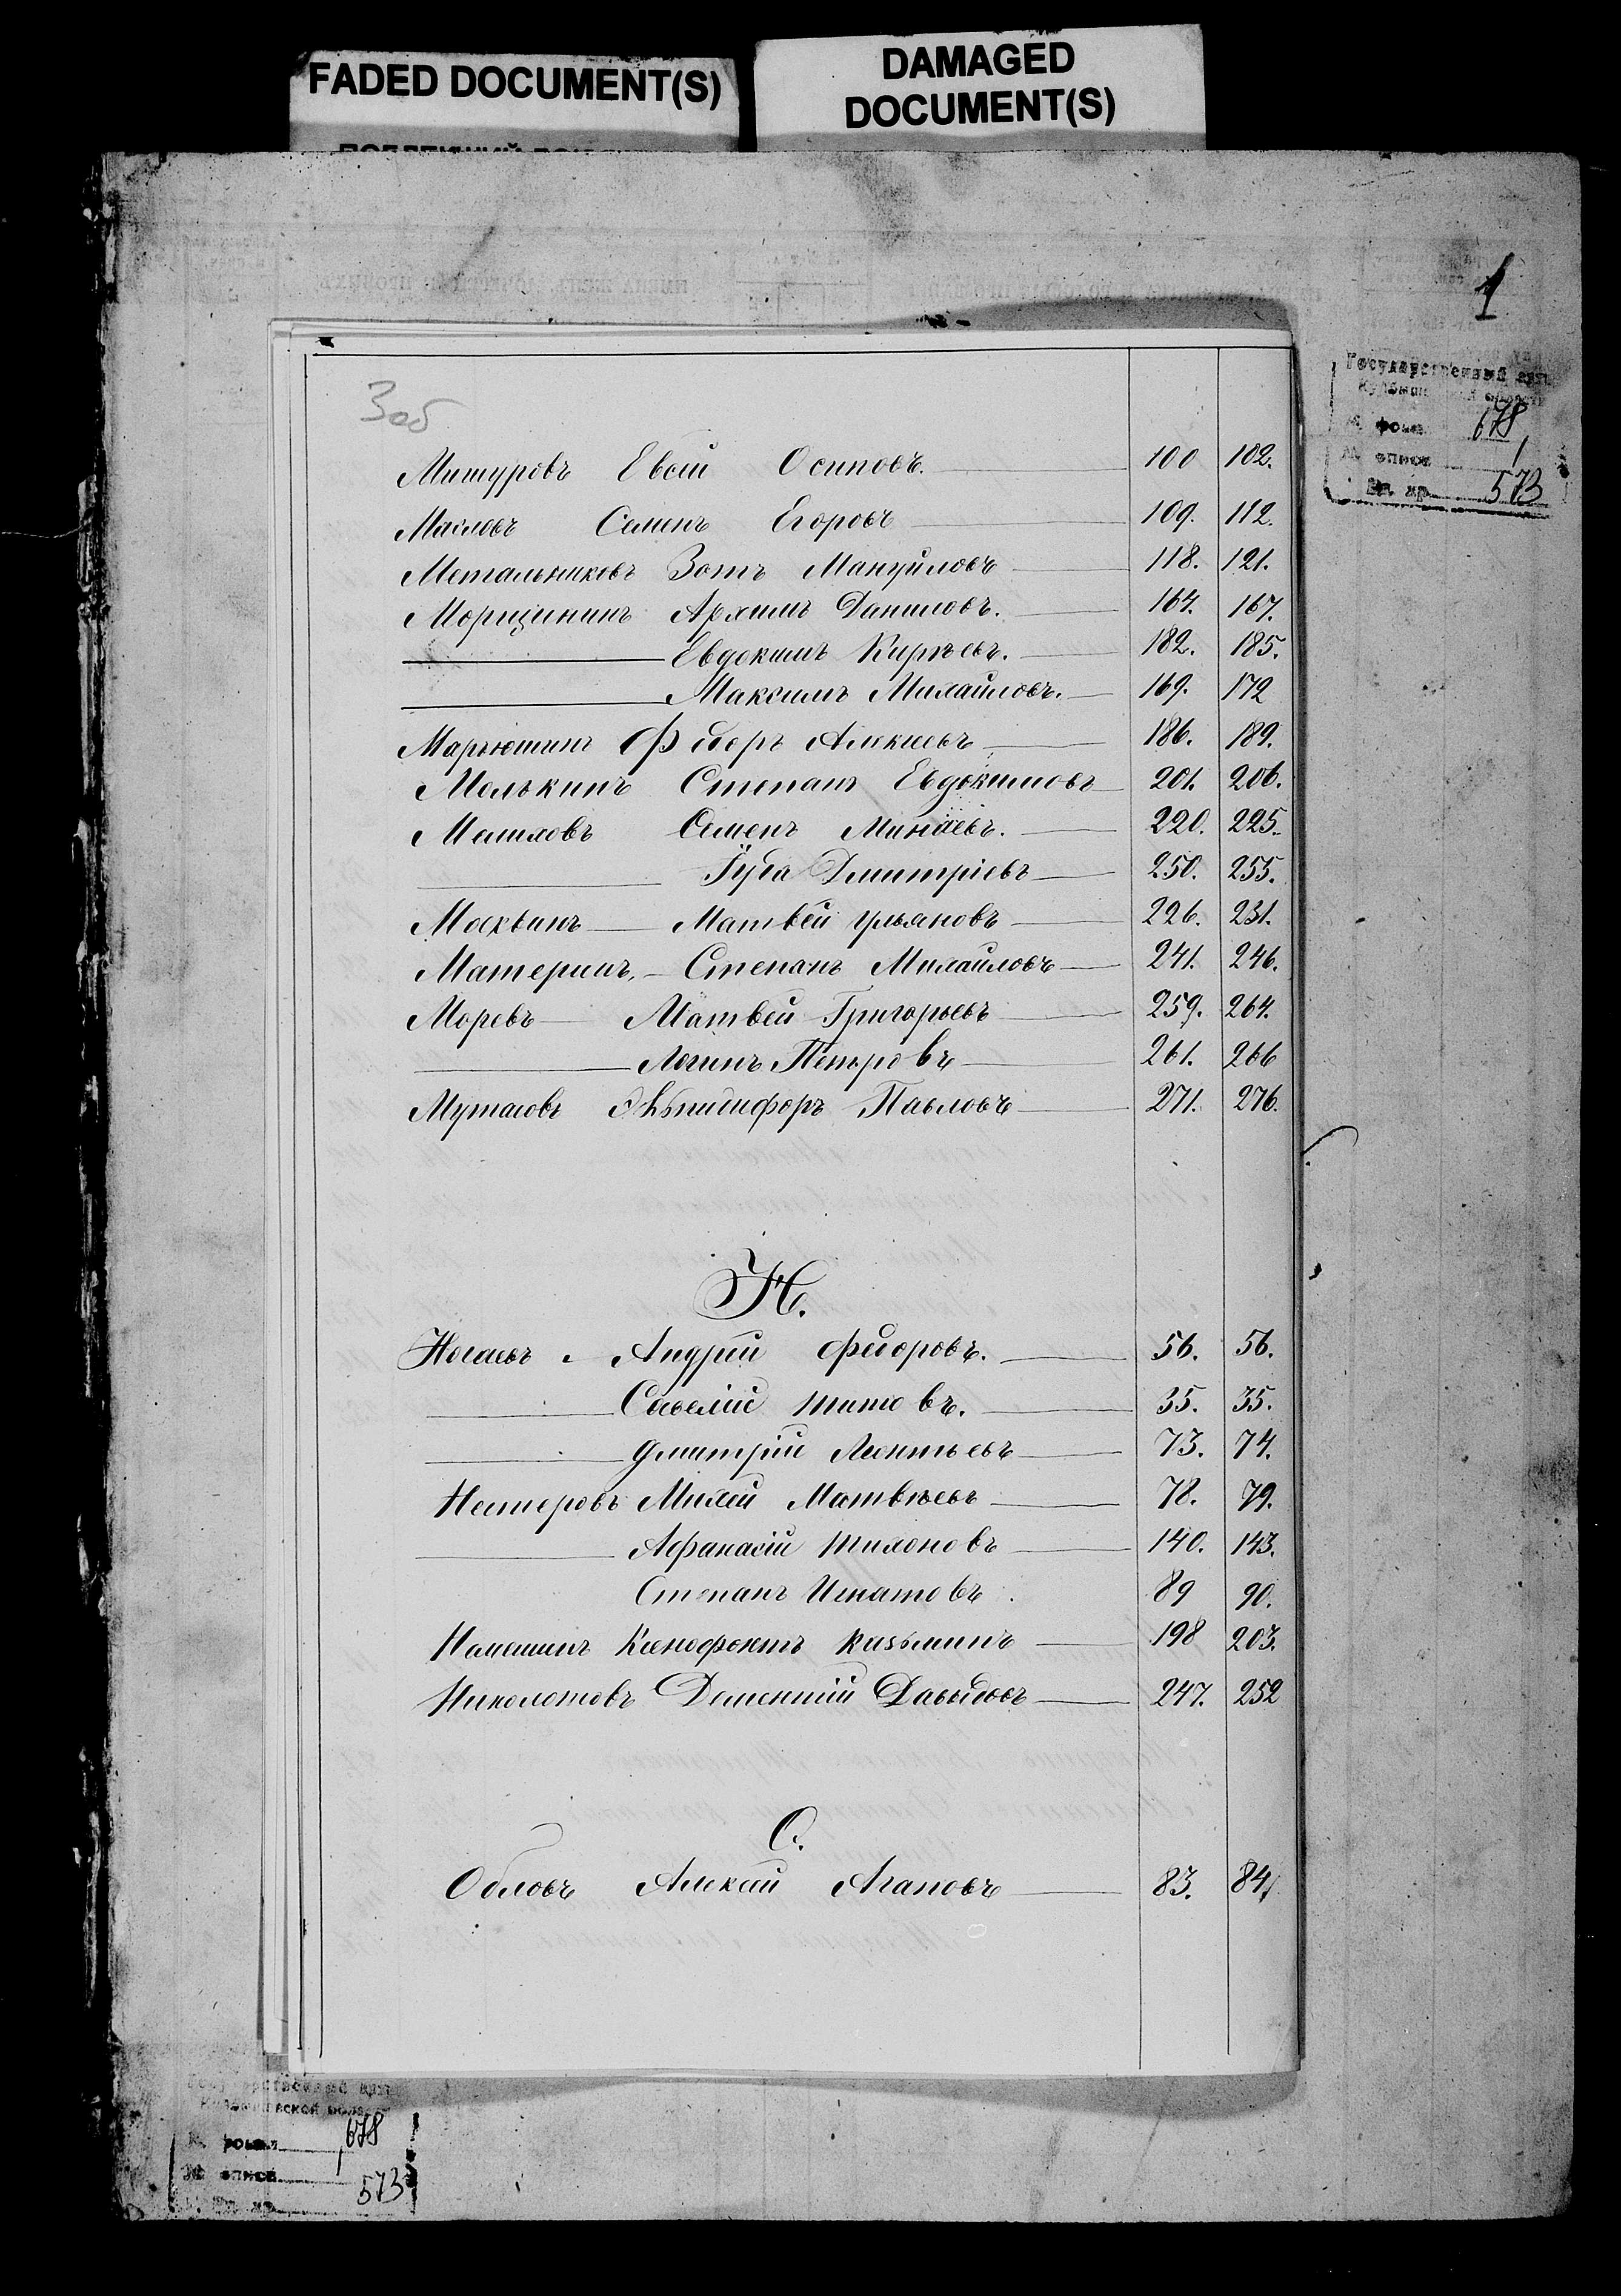 FADED DOCUMENT(S)
DAMAGED
DOCUMENT(S)
1
Государственный арх
№ фонд 678
№ описи 1
Ед. хр. 573
3 об
Митуровъ Евсей Осиповъ. 100 102.
Масловъ Семенъ Егоровъ 109. 112.
Метальниковъ Зотъ Мануйловъ 118. 121.
Морщининъ Архипъ Даниловъ. 164. 167.
Евдокимъ Киръевъ. 182. 185.
Максимъ Михайловъ. 169. 172
Марьюшинъ Федоръ Алексеевъ 186. 189.
Мелькинъ Степанъ Евдокимовъ 201. 206.
Машковъ Семенъ Минаевъ. 220. 225.
Дмитріевъ 250. 255.
Москвинъ Матвей Ульяновъ 226. 231.
Материнъ Степанъ Михайловъ 241. 246.
Моревъ Матвей Григорьевъ 259. 264.
Логинъ Петровъ 261. 266
Павловъ 271. 276.
Н.
Ногаевъ Андрей Федоровъ. 56. 56.
Савелій Титовъ. 35. 35.
Дмитрій Леонтьевъ 73. 74.
Нестеровъ Михей Матвѣевъ 78. 79.
Афанасій Тихоновъ 140. 143.
Степанъ Игнатовъ. 89 90.
Ксенофонтъ Казьминъ 198 203.
Николотовъ Дементій Давыдовъ 247. 252
О.
Обловъ Алексей Агаповъ 83. 84.
№ фонд 678
№ описи 1
Ед. хр. 573